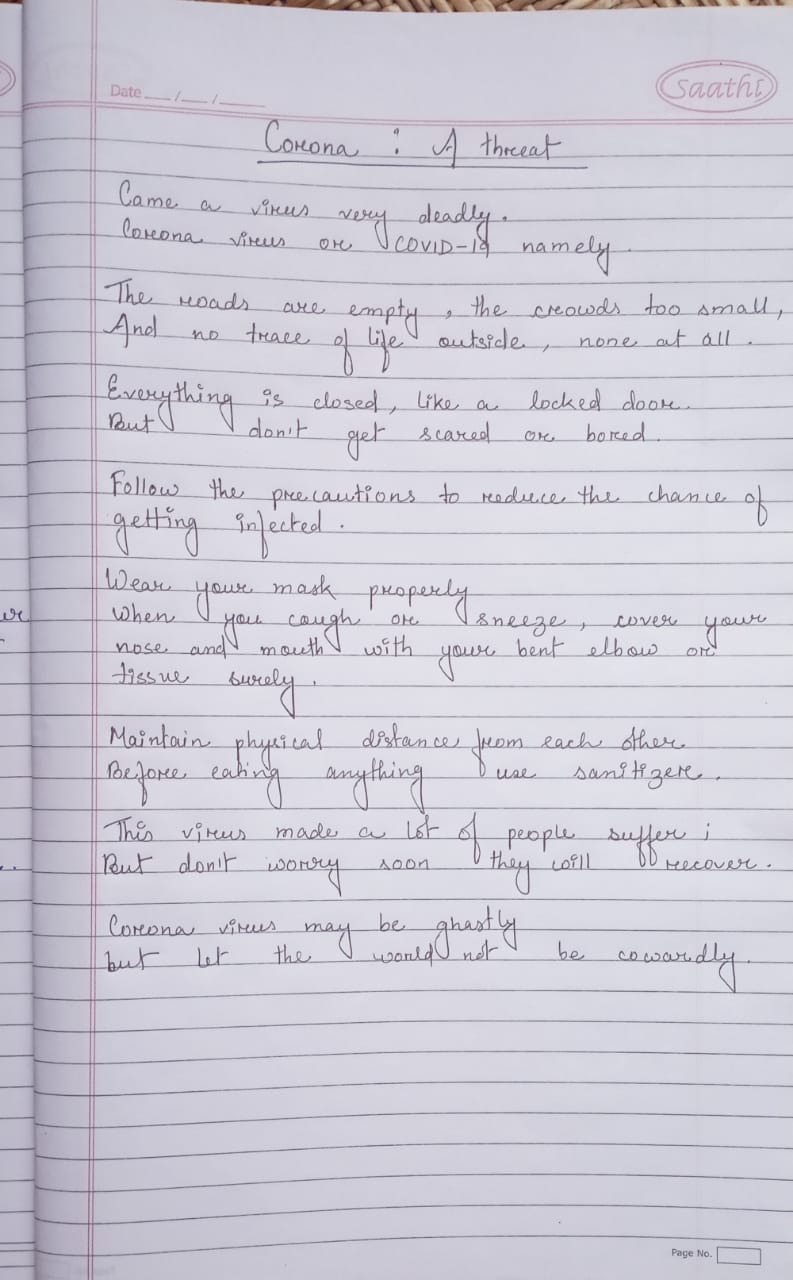 Date __/__/__
Saathi
Corona : A threat
Came a virus very deadly.
Corona virus or COVID-19 namely.
The roads are empty, the crowds too small,
And no trace of life outside, none at all.
Everything is closed, like a locked door.
But don't get scared or bored.
Follow the precautions to reduce the chance of
getting infected.
Wear your mask properly
when you cough or sneeze, cover your
nose and mouth with your bent elbow or
tissue surely.
Maintain physical distance from each other
Before eating anything use sanitizer.
This virus made a lot of people suffer;
But don't worry soon they will recover.
Corona virus may be ghastly
but let the world not be cowardly.
Page No.